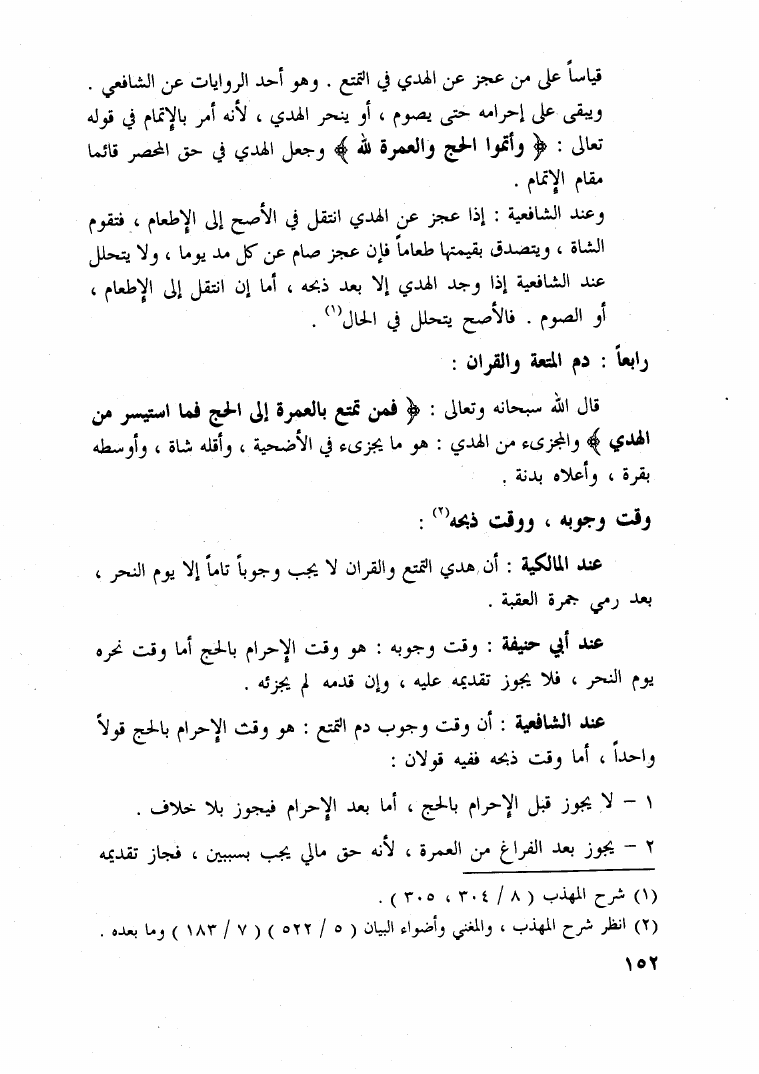 قياساً على من عجز عن الهدي في التمتع . وهو أحد الروايات عن الشافعي .
ويبقى على إحرامه حتى يصوم ، أو ينحر الهدي ، لأنه أمر بالإتمام في قوله
تعالى : ﴿ وأتموا الحج والعمرة لله ﴾ وجعل الهدي في حق المحصر قائما
مقام الإتمام .
وعند الشافعية : إذا عجز عن الهدي انتقل في الأصح إلى الإطعام ، فتقوم
الشاة ، ويتصدق بقيمتها طعاماً فإن عجز صام عن كل مد يوما ، ولا يتحلل
عند الشافعية إذا وجد الهدي إلا بعد ذبحه ، أما إن انتقل إلى الإطعام ،
أو الصوم . فالأصح يتحلل في الحال(١) .
رابعاً : دم المتعة والقران :
قال الله سبحانه وتعالى : ﴿ فمن تمتع بالعمرة إلى الحج فما استيسر من
الهدي ﴾ والمجزىء من الهدي : هو ما يجزىء في الأضحية ، وأقله شاة ، وأوسطه
بقرة ، وأعلاه بدنة .
وقت وجوبه ، ووقت ذبحه(٢) :
عند المالكية : أن هدي التمتع والقران لا يجب وجوباً تاماً إلا يوم النحر ،
بعد رمي جمرة العقبة .
عند أبي حنيفة : وقت وجوبه : هو وقت الإحرام بالحج أما وقت نحره
يوم النحر ، فلا يجوز تقديمه عليه ، وإن قدمه لم يجزئه .
عند الشافعية : أن وقت وجوب دم التمتع : هو وقت الإحرام بالحج قولاً
واحداً ، أما وقت ذبحه ففيه قولان :
١ – لا يجوز قبل الإحرام بالحج ، أما بعد الإحرام فيجوز بلا خلاف .
٢ – يجوز بعد الفراغ من العمرة ، لأنه حق مالي يجب بسببين ، فجاز تقديمه
(١) شرح المهذب ( ٨ / ٣٠٤ ، ٣٠٥ ) .
(٢) انظر شرح المهذب ، والمغني وأضواء البيان ( ٥ / ٥٢٢ ) ( ٧ / ١٨٣ ) وما بعده .
١٥٢